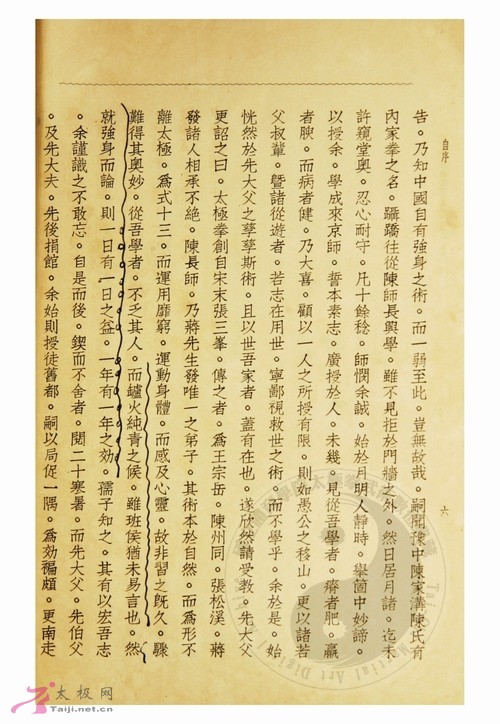 自序
六
告。乃知中國自有強身之術。而一弱至此。豈無故哉。嗣聞豫中陳家溝陳氏有
內家拳之名。躡蹻往從陳師長興學。雖不見拒於門牆之外。然日居月諸。迄未
許窺堂奧。忍心耐守。凡十餘稔。師憫余誠。始於月明人靜時。舉箇中妙諦。
以授余。學成來京師。誓本素志。廣授於人。未幾。見從吾學者。瘠者肥。羸
者腴。而病者健。乃大喜。顧以一人之所授有限。則如愚公之移山。更以諸若
父叔輩。暨諸從遊者。若志在用世。寧鄙視救世之術。而不學乎。余於是。始
恍然於先大父之孳孳斯術。且以世吾家者。蓋有在也。遂欣然請受教。先大父
更詔之曰。太極拳創自宋末張三峯。傳之者。爲王宗岳。陳州同。張松溪。蔣
發諸人相承不絕。陳長師。乃蔣先生發唯一之弟子。其術本於自然。而爲形不
離太極。爲式十三。而運用靡窮。運動身體。而感及心靈。故非習之旣久。驟
難得其奧妙。從吾學者。不乏其人。而爐火純青之候。雖班侯猶未易言也。然
就強身而論。則一日有一日之益。一年有一年之効。孺子知之。其有以宏吾志
。余謹識之不敢忘。自是而後。鍥而不舍者。閱二十寒暑。而先大父。先伯父
。及先大夫。先後捐館。余始則授徒舊都。嗣以局促一隅。爲効褊頗。更南走
太极网
Taiji.net.cn